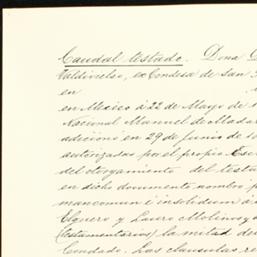 Caudal testado. Dona D
Valdivielso, ex Condesa de San
en
en Mexico á 22 de Mayo de 1
Nacional Manuel de Madar
adicionó en 29 de Junio de 1
autorizadas por el propio Esc
del otorgamiento del testa
en dicho documento nombró p
mancomun é insolidum á
Elguero y Luero Molinos y
(testamentarios) la mitad de
Condado. Las clausulas re